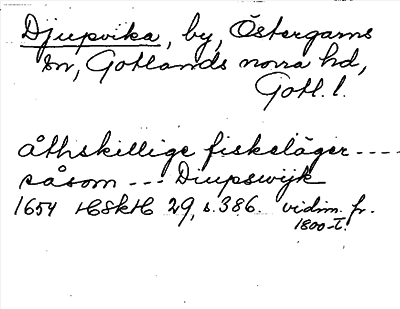 Djupvika, by, Östergarns
sn, Gotlands norra hd,
Gotl. l.
åthskillige fiskeläger ----
såsom --- Diupswijk
1654 HSkH 29, s. 386. vidim. fr.
1800-t.